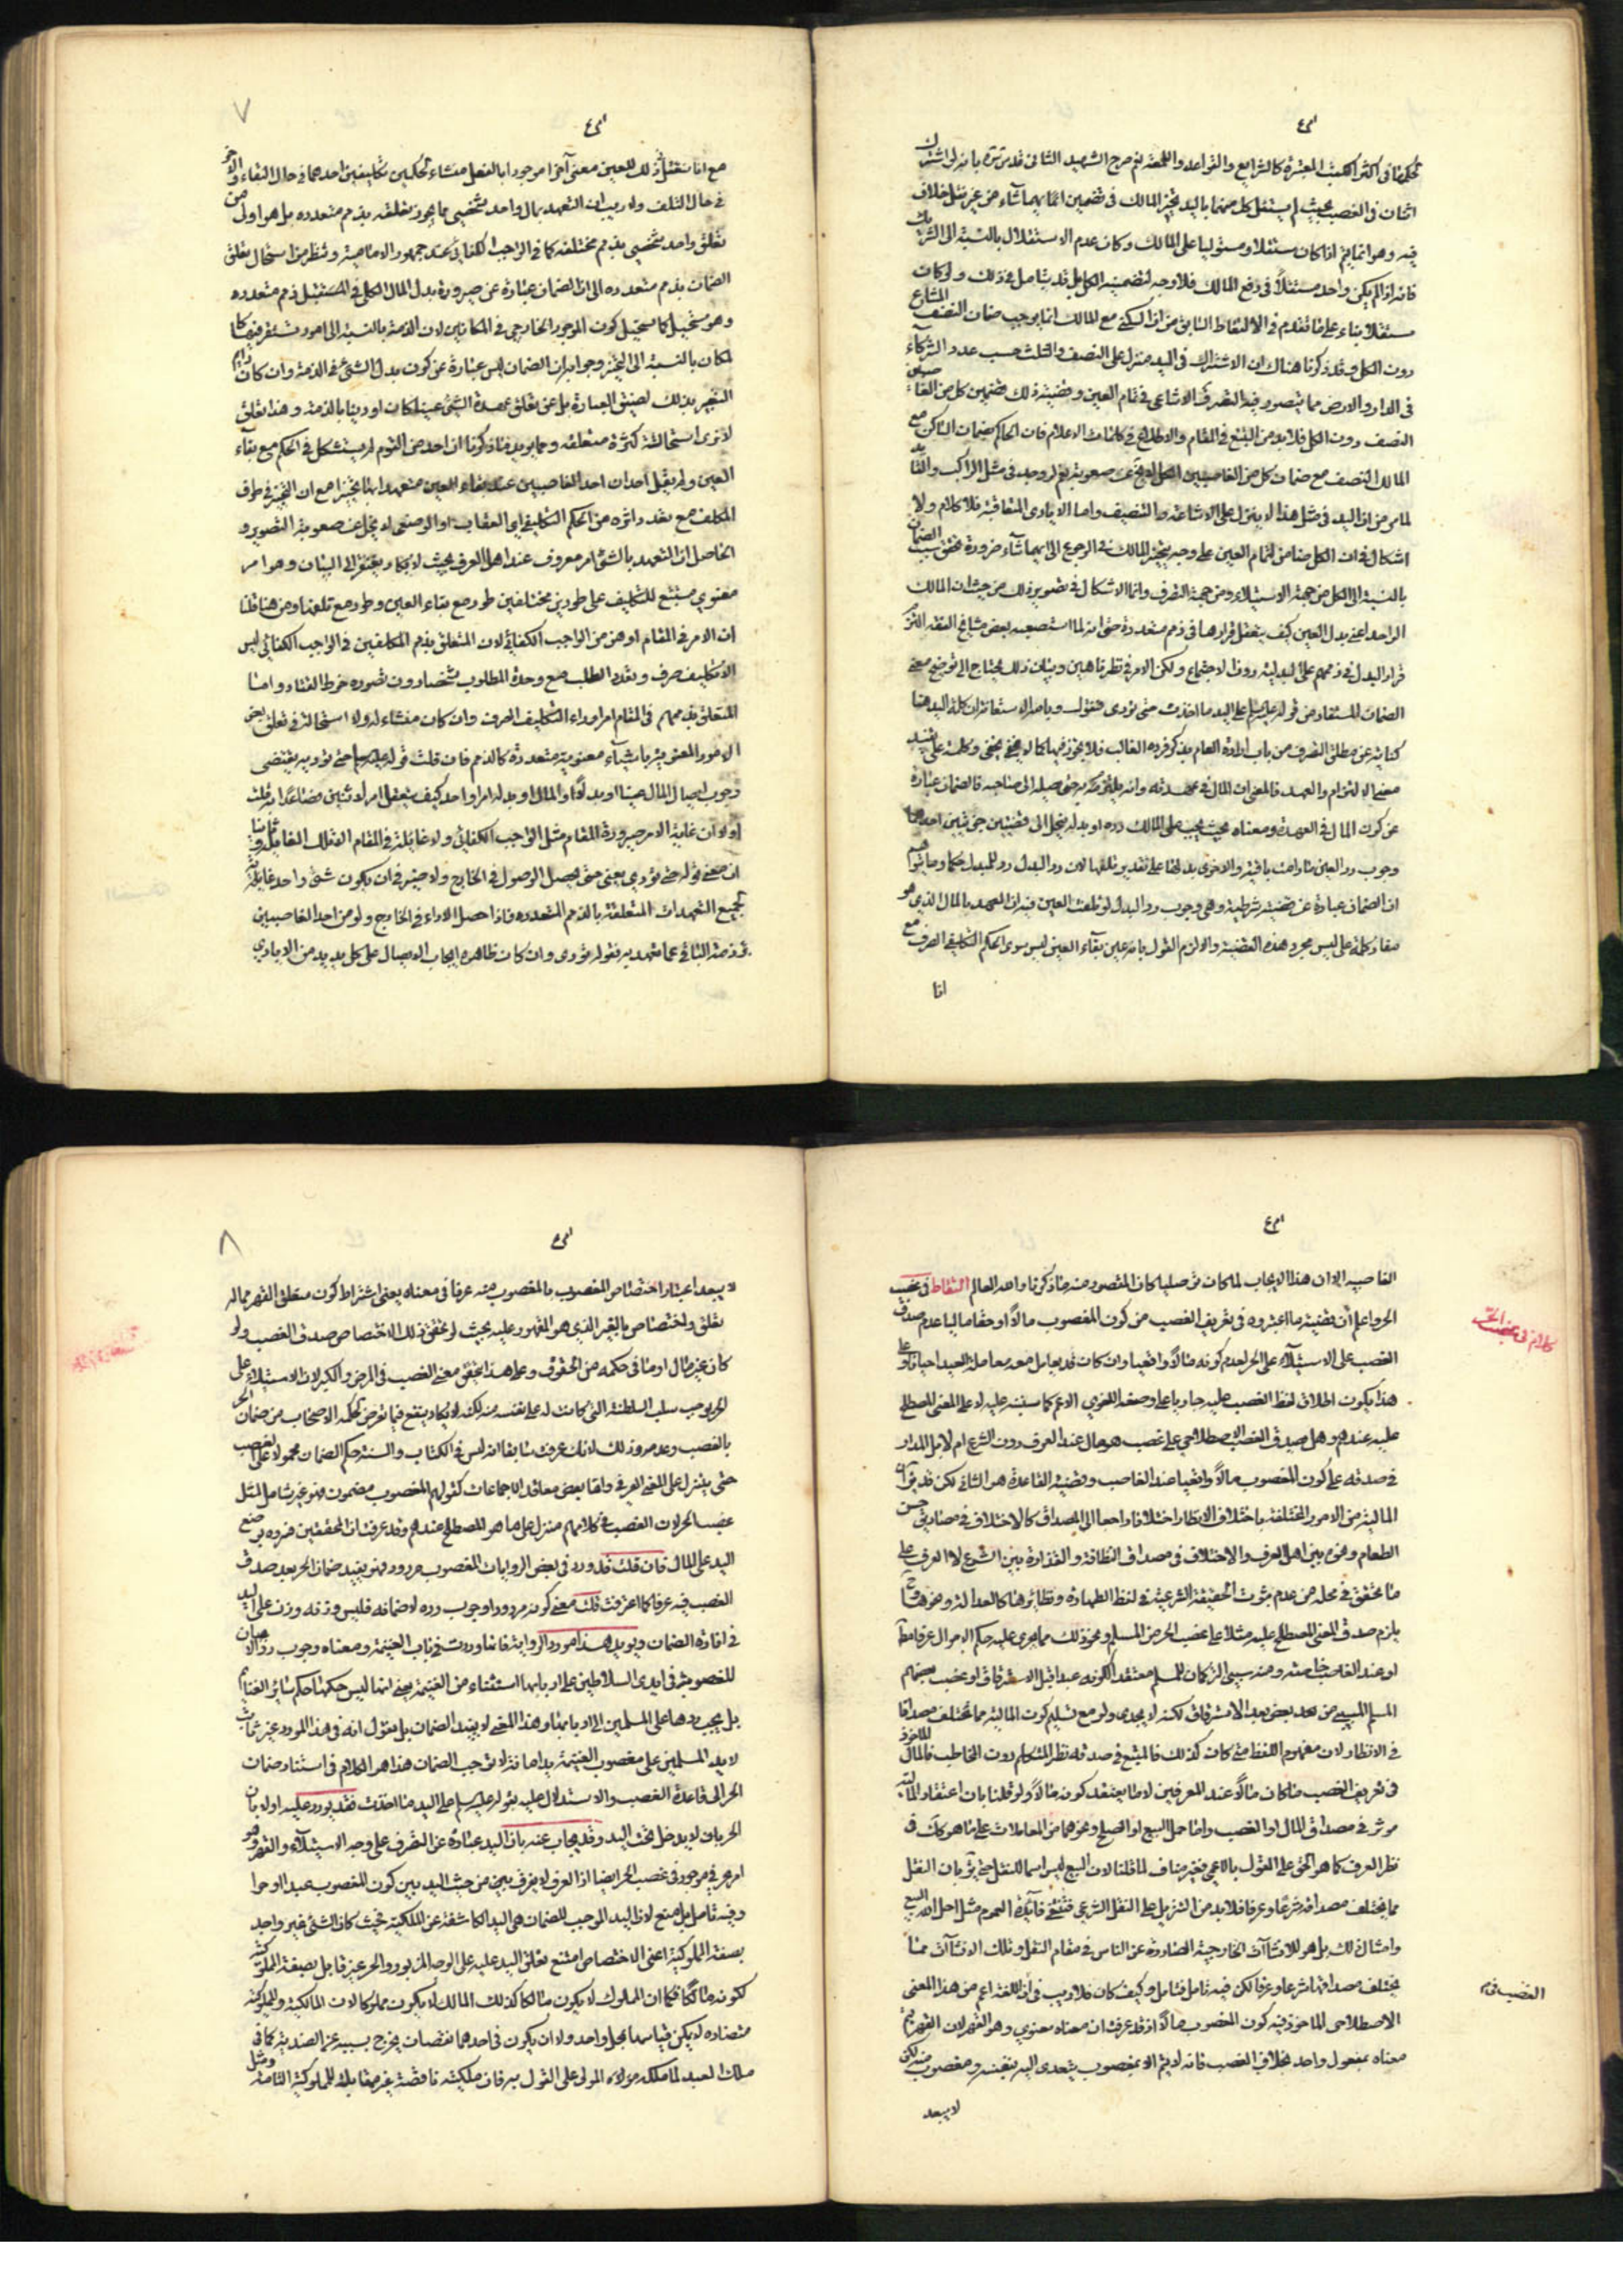 لحكمنا في اكثر الكتب المعتبرة كالشرايع والقواعد واللمعة نعم صرح الشهيد الثاني قدس سره بانه لو اشترك
اثنان في الغصب بحيث لم يستقل كل منهما باليد تخير المالك في تضمين ايهما شاء من غير نقل خلاف
فيه وهو انما يتم اذا كان مستقلا ومستوليا على المالك وكان عدم الاستقلال بالنسبة الى الشريك
فانه اذا لم يكن واحد مستقلا في دفع المالك فلا وجه لتضمينه الكل بل قد يتامل في ذلك ولو كان
مستقلا بناء على ما تقدم في الالتقاط السابق من ان السكنى مع المالك انما يوجب ضمان النصف المشاع
دون الكل وقد ذكرنا هناك ان الاشتراك في اليد منزل على النصف والثلث حسب عدد الشركاء
في الدار والارض مما يتصور فيه التصرف الاشاعي في تمام العين وقضية ذلك تضمين كل من الغاصبين
النصف دون الكل فلا بد من التتبع في المقام والاطلاع في كلمات الاعلام فان الحكم بضمان الساكن مع
المالك النصف مع ضمان كل من الغاصبين الكل لا يخ عن صعوبة نعم له وجه في مثل الراكب والسائق
لما مر من ان اليد في مثل هذا لا ينزل على الاشاعة والتنصيف واما الايادي المتعاقبة فلا كلام ولا
اشكال في ان الكل ضامن لتمام العين على وجه يتخير المالك في الرجوع الى ايهما شاء ضرورة تحقق سبب الضمان
بالنسبة الى الكل من جهة الاستيلاء ومن جهة التصرف وانما الاشكال في تصوير ذلك من حيث ان المالك
الواحد اعني بدل العين كيف يتعقل قرارها في ذمم متعددة حتى انه لما استصعبه بعض مشايخنا
قرار البدل في ذممهم على البدلية دون الاجتماع ولكن الامر في نظرنا هين وبيان ذلك يحتاج الى توضيح معنى
الضمان المستفاد من قوله على اليد ما اخذت حتى تؤدي فنقول وبالله الاستعانة ان كلمة اليد هنا
كناية عن مطلق التصرف من باب ارادة العام بذكر فرده الغالب فلا تجوز فيها كما لا يخفى وكلمة على تفيد
معنى الالتزام والعهدة فالمعنى ان المال في عهدته وانه يلتزم به حتى يصله الى صاحبه فالضمان عبارة
عن كون المال في العهدة ومعناه بحيث يجب على المالك رده او بدله ينحل الى قضيتين احدهما
وجوب رد العين ما دامت باقية والاخرى بدلها على تقدير تلفها لان رد البدل رد للمبدل حكما وما يتوهم
ان الضمان عبارة عن قضية شرطية وهي وجوب رد البدل لو تلفت العين فيه ان التعهد بالمال الذي هو
مفاد كلمة على ليس مجرد هذه القضية والا لزم القول بانه عين بقاء العين ليس سوى الحكم التكليفي الصرف مع
انا
٧
مع انا نتعقل في ذلك للعين معنى آخر موجودا بالفعل منشاء لحكمين تكليفين احدهما في حال البقاء والاخر
في حال التلف ولا ريب ان التعهد بمال واحد شخصي مما يجوز تعلقه بذمم متعدده بل هو اولى من
تعلق واحد شخصي بذمم مختلفه كما في الواجب الكفائي عند جمهور الامامية ونظر من استحال تعلق
الضمان بذمم متعدده الى ان الضمان عبارة عن صيرورة بدل المال الكلي في المستقبل ذمم متعدده
وهو مستحيل كما يستحيل كون الموجود الخارجي في المكانين لان الذمة بالنسبة الى امور تستقر فيها كالمكان
لمكان بالنسبة الى المتحيز وجوابه ان الضمان ليس عبارة عن كون بدل الشيء في الذمة وان كان
التعبير بذلك لضيق العبارة بل عن تعلق عهدة الشيء عينا كان او دينا بالذمة وهذا تعلق
لا نرى استحالة كثرة متعلقه ومما يؤيد ما ذكرنا ان احد من القوم لم يستشكل في الحكم مع بقاء
العين ولم يقل احد ان احد الغاصبين عند بقاء العين متعهد بها تخييرا مع ان التخيير في طرف
المكلف مع تعدد دائره من الحكم التكليفي اي العقاب او الوضعي لا يخل عن صعوبة التصوير و
الحاصل ان التعهد بالشيء امر معروف عند اهل العرف بحيث لا يكاد يفتقر الى البيان وهو امر
معنوي مستتبع للتكليف على طورين مختلفين طور مع بقاء العين وطور مع تلفها ومن هنا قلنا
ان الامر في المقام اوهن من الواجب الكفائي لان المتعلق بذمم المكلفين في الواجب الكفائي ليس
الا تكليف صرف وتعدد الطلب مع وحدة المطلوب شخصا دون تصوره خرط القتاد واما
المتعلق بذممهم في المقام امر وراء التكليف الصرف وان كان منشاء له ولا استحالة في تعلق بعض
الامور المعنوية باشياء معنوية متعددة كالذمم فان قلت قوله حتى تؤدي يقتضى
وجوب ايصال المال عينا او بدلا والمال او بدله امر واحد كيف يتعقل امر لاثنين فصاعدا به قلت
اولا ان غاية الامر صيرورة المقام مثل الواجب الكفائي ولا غائلة في المقام وثانيا
ان معنى قوله حتى تؤدي يعني حتى يحصل الوصول في الخارج ولا ضير في ان يكون شيء واحد غاية
لجميع التعهدات المتعلقة بالذمم المتعدده فاذا حصل الاداء في الخارج ولو من احد الغاصبين
برء ذمة الباقي عما تعهد به فقوله تؤدي وان كان ظاهره ايجاب الايصال على كل يد يد من الايادي
الغاصبه الا ان هذا الايجاب لما كان توصليا كان المقصود منه ما ذكرنا والله العالم التقاط في غصب
الحر واعلم ان قضية ما اعتبروه في تعريف الغصب من كون المغصوب مالا او حقا ماليا عدم صدق
الغصب على الاستيلاء على الحر لعدم كونه مالا واقعيا وان كان قد يعامل معه معاملة العبيد احيانا وعلى
هذا يكون اطلاق لفظ الغصب عليه جاريا على وضعه اللغوي الاعم كما سينبه عليه لا على المعنى المصطلح
عليه عندهم وهل يصدق الغصب الاصطلاحي على غصب هو مال عند العرف دون الشرع ام لا بل المدار
في صدقه على كون المغصوب مالا واقعيا عند الغاصب وقضية القاعدة هو الثاني لكن قد يق ان
المالية من الامور المختلفة باختلاف الانظار اختلافا راجعا الى المصداق كالاختلاف في مصاديق حسن
الطعام وغيره بين اهل العرف والاختلاف في مصداق النظافة والقذارة بين الشرع والعرف على
ما تحقق في محله من عدم ثبوت الحقيقة الشرعية في لفظ الطهارة ونظائرها كالعدالة ونحوها وح
يلزم صدق المعنى المصطلح عليه مثلا على غصب الخمر من المسلم ونحو ذلك مما يجري عليه حكم الاموال عرفا مطلقا
او عند الغاصب خاصة ومنه سبي التركمان للمسلم معتقدا لكونه عبدا قبل الاسترقاق او غصب بعضهم
المسلم المسبى من بعد بعض بعد الاسترقاق لكنه لا يجدي ولو مع تسليم كون المالية مما تختلف مصداقا
في الانظار لان مفهوم اللفظ متى كان كذلك فالمتبع في صدقه نظر المتكلم دون المخاطب فالمال الماخوذ
في تعريف الغصب ما كان مالا عند المعرفين لا ما يعتقد كونه مالا ولو قلنا بان اعتقاد المالية
موثر في مصداق المال او الغصب واما حمل البيع او الصلح ونحوهما من المعاملات على ما هو كك في
نظر العرف كما هو الحق على القول بالاعمي فغير مناف لما قلنا لان البيع ليس اسما للنقل حتى يق بان النقل
مما يختلف مصداقه شرعا وعرفا فلا بد من التنزيل على النقل الشرعي فتنتفي فائدة العموم مثل احل الله البيع
وامثال ذلك بل هو للانشاآت الخارجية الصادرة عن الناس في مقام النقل وتلك الانشاآت مما
يختلف مصداقها شرعا وعرفا لكن فيه تامل فتامل وكيف كان فلا ريب في ان اللغة اعم من هذا المعنى
الاصطلاحي الماخوذ فيه كون المغصوب مالا اذ قد عرفت ان معناه معنوي وهو القهر لان القهر يتم
معناه بمفعول واحد بخلاف الغصب فانه لا يتم الا بمغصوب يتعدى اليه بنفسه ومغصوب منه لكن
لا يبعد
كلام في غصب الحر
٨
لا يبعد اعتبار اختصاص المغصوب بالمغصوب منه عرفا في معناه يعني اشتراط كون متعلق القهر مما له
تعلق واختصاص بالغير الذي هو المقهور عليه بحيث لو تحقق ذلك الاختصاص صدق الغصب ولو
كان غير مال او ما في حكمه من الحقوق وعلى هذا يتحقق معنى الغصب في الحر الصغير والكبير لان الاستيلاء على
الحر يوجب سلب السلطنة التي كانت له على نفسه لكنه لا يكاد ينفع فيما تعرض لحكمه الاصحاب من ضمان الحر
بالغصب وعدمه وذلك لانك عرفت سابقا انه ليس في الكتاب والسنة حكم الضمان محمولا على الغصب
حتى ينزل على المعنى العرفي واما بعض معاقد الاجماعات كقولهم المغصوب مضمون فهو غير شامل لمثل
غصب الحر لان الغصب في كلامهم منزل على ما هو المصطلح عندهم وقد عرفت ان المحققين فسروه بوضع
اليد على المال فان قلت قد ورد في بعض الروايات المغصوب مردود فهو يفيد ضمان الحر بعد صدق
الغصب فيه عرفا كما اعترفت قلت معنى كونه مردودا وجوب رده لا ضمانه فليس وزنه وزن على اليد
في افادة الضمان ويؤيد هذا مورد الرواية فانها وردت في باب الغنيمة ومعناه وجوب رد الاعيان
المغصوبة في ايدي السلاطين على اربابها استثناء من الغنيمة يعني انها ليس حكمها حكم سائر الغنائم
بل يجب ردها على المسلمين الى اربابها وهذا المعنى لا يفيد الضمان بل نقول انه في هذا المورد غير ثابت
لا يد المسلمين على مغصوب الغنيمة يد امانة لا توجب الضمان هذا هو الكلام في استناد ضمان
الحر الى قاعدة الغصب والاستدلال عليه بقوله على اليد ما اخذت فقد يورد عليه اولا بان
الحر بان لا يدخل تحت اليد وقد يجاب عنه بان اليد عبارة عن التصرف على وجه الاستيلاء والقهر وهو
امر عرفي موجود في غصب الحر ايضا اذ العرف لا يفرق بين من حيث اليد بين كون المغصوب عبدا او حرا
وفيه تامل بل منع لان اليد الموجب للضمان هي اليد الكاشفة عن الملكية بحيث كان الشيء غير واجد
بصفة المملوكية اعني الاختصاص امتنع تعلق اليد عليه على الوجه المزبور والحر غير قابل بصفة المملوكية
لكونه مالكا فكما ان المملوك لا يكون مالكا كذلك المالك لا يكون مملوكا لان المالكية والمملوكية
متضاده لا يمكن قيامهما بمحل واحد ولا ان يكون في احدهما نقصان يخرج بسببه عن الضدية كما في
ملك العبد لما ملكه مولاه المولى على القول به فان ملكيته ناقصة غير مقابلة للمملوكية التامة